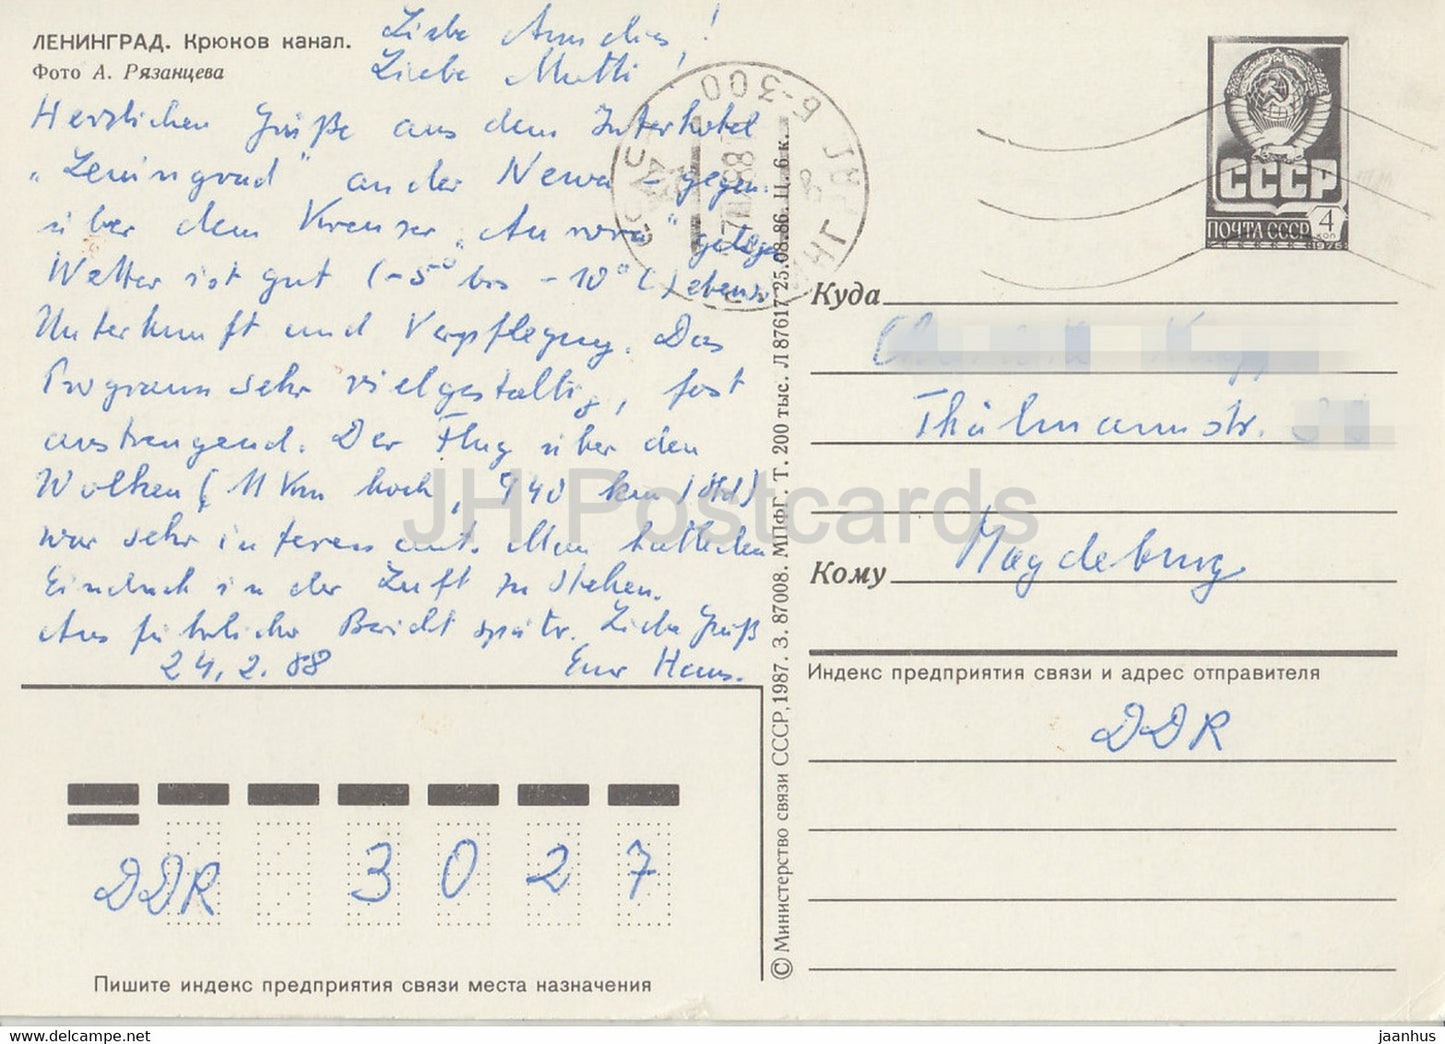 ЛЕНИНГРАД. Крюков канал.
Фото А. Рязанцева
Liebe !
Liebe Mutti
Herzlichen Grüße aus dem Interhotel
"Leningrad" an der Newa - gegen-
über dem Kreuzer "Aurora"
Wetter ist gut (-5° bis -10° C) ebenso
Unterkunft und Verpflegung. Das
Programm sehr vielgestaltig, fast
anstrengend. Der Flug über den
Wolken (11 km hoch, 940 km/Std)
war sehr interessant. Man hatte den
Eindruck in der Luft zu stehen.
Ausführlicher Bericht später. Liebe Grüße
24.2.88 Euer Hans.
ПОЧТА СССР
СССР
4
КОП
1976
Б-300
Куда
Thälmannstr.
Magdeburg
Кому
Индекс предприятия связи и адрес отправителя
DDR
DDR 3027
Пишите индекс предприятия связи места назначения
© Министерство связи СССР, 1987. З. 87008. МПФГ. Т. 200 тыс. Л 87617 25.08.86. Ц. 6 к.
JH Postcards
delcampe.net
jaanhus